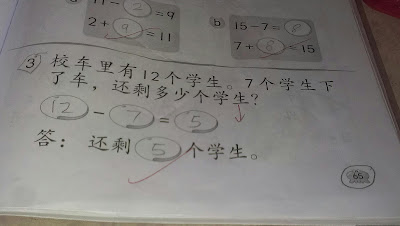 a 11 - 2 = 9
2 + 9 = 11
b 15 - 7 = 8
7 + 8 = 15
3 校车里有12个学生。7个学生下
了车，还剩多少个学生？
12 - 7 = 5
答：还剩 5 个学生。